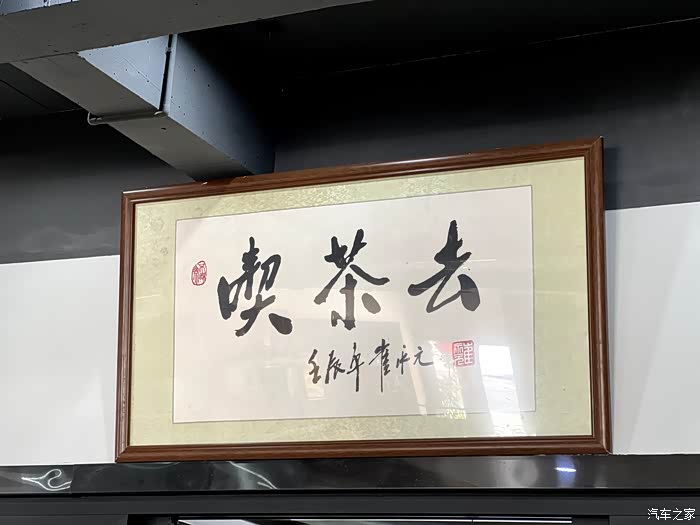 喫茶去
壬辰年崔永元
汽车之家